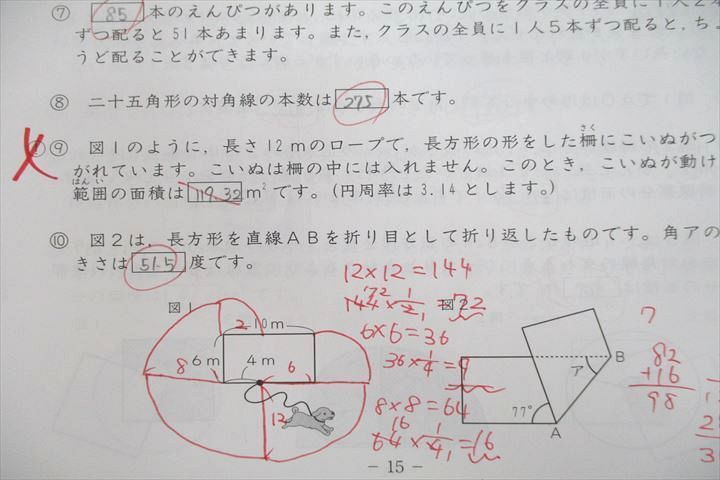 ⑦ 85 本のえんぴつがあります。このえんぴつをクラスの全員に1人2本
ずつ配ると51本あまります。また,クラスの全員に1人5本ずつ配ると,ちょ
うど配ることができます。
⑧ 二十五角形の対角線の本数は 275 本です。
⑨ 図1のように,長さ12mのロープで,長方形の形をした柵にこいぬがつ
さく
がれています。こいぬは柵の中には入れません。このとき,こいぬが動け
はんい
範囲の面積は 119.32 m²です。(円周率は3.14とします。)
⑩ 図2は,長方形を直線ABを折り目として折り返したものです。角アの
きさは 51.5 度です。
12×12=144
図1
144×1/2=72
72
1
図2
2
10m
6×6=36
6m
8
4m
6
36×1/4=9
8×8=64
12
16
64×1/4=16
1
B
ア
77°
A
7
82
+16
98
- 15 -